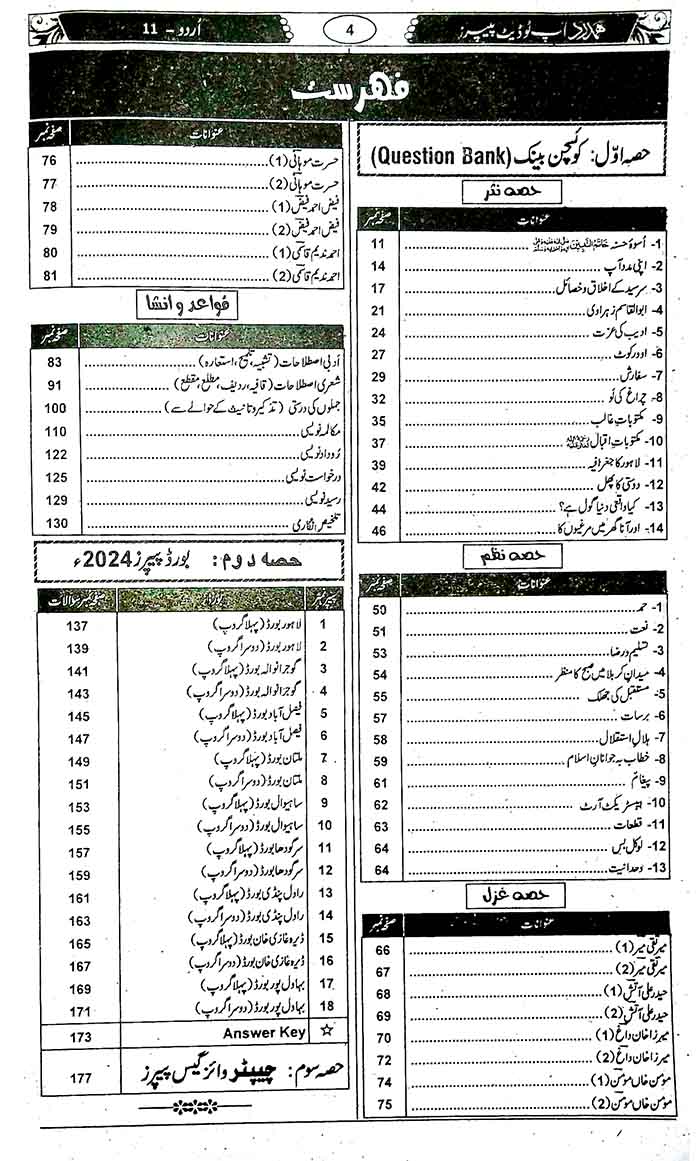 ہمدرد اَپ ٹو ڈیٹ پیپرز
4
اُردو - 11
فہرست
حصہ اوّل: کوئسچن بینک (Question Bank)
حصہ نثر
عنوانات صفحہ نمبر
1- اُسوۂ حسنہ خاتم النبیین صلی اللہ علیہ وسلم 11
2- اپنی مدد آپ 14
3- سرسید کے اخلاق و خصائل 17
4- ابوالقاسم زہراوی 21
5- ادیب کی عزت 24
6- اوورکوٹ 27
7- سفارش 29
8- چراغ کی لَو 32
9- مکتوباتِ غالب 35
10- مکتوباتِ اقبال 37
11- لاہور کا جغرافیہ 39
12- دوستی کا پھل 42
13- کیا واقعی دنیا گول ہے؟ 44
14- اور آنا گھر میں مرغیوں کا 46
حصہ نظم
عنوانات صفحہ نمبر
1- حمد 50
2- نعت 51
3- تسلیم و رضا 53
4- میدانِ کربلا میں صبح کا منظر 54
5- مستقبل کی جھلک 55
6- برسات 57
7- ہلالِ استقلال 58
8- خطاب بہ جوانانِ اسلام 59
9- پیغام 61
10- ایبسٹریکٹ آرٹ 62
11- قطعات 63
12- لوکل بس 64
13- وحدانیت 64
حصہ غزل
عنوانات صفحہ نمبر
میر تقی میر (1) 66
میر تقی میر (2) 67
حیدر علی آتش (1) 68
حیدر علی آتش (2) 69
میرزا خان داغ (1) 70
میرزا خان داغ (2) 72
مومن خاں مومن (1) 74
مومن خاں مومن (2) 75
عنوانات صفحہ نمبر
حسرت موہانی (1) 76
حسرت موہانی (2) 77
فیض احمد فیض (1) 78
فیض احمد فیض (2) 79
احمد ندیم قاسمی (1) 80
احمد ندیم قاسمی (2) 81
قواعد و انشا
عنوانات صفحہ نمبر
اَدبی اصطلاحات (تشبیہ، تلمیح، استعارہ) 83
شعری اصطلاحات (قافیہ، ردیف، مطلع، مقطع) 91
جملوں کی درستی (تذکیر و تانیث کے حوالے سے) 100
مکالمہ نویسی 110
رُوداد نویسی 122
درخواست نویسی 125
رسید نویسی 129
تلخیص نگاری 130
حصہ دوم: بورڈ پیپرز 2024ء
پیپر نمبر بورڈ صفحہ نمبر سوالات
1 لاہور بورڈ (پہلا گروپ) 137
2 لاہور بورڈ (دوسرا گروپ) 139
3 گوجرانوالہ بورڈ (پہلا گروپ) 141
4 گوجرانوالہ بورڈ (دوسرا گروپ) 143
5 فیصل آباد بورڈ (پہلا گروپ) 145
6 فیصل آباد بورڈ (دوسرا گروپ) 147
7 ملتان بورڈ (پہلا گروپ) 149
8 ملتان بورڈ (دوسرا گروپ) 151
9 ساہیوال بورڈ (پہلا گروپ) 153
10 ساہیوال بورڈ (دوسرا گروپ) 155
11 سرگودھا بورڈ (پہلا گروپ) 157
12 سرگودھا بورڈ (دوسرا گروپ) 159
13 راولپنڈی بورڈ (پہلا گروپ) 161
14 راولپنڈی بورڈ (دوسرا گروپ) 163
15 ڈیرہ غازی خان بورڈ (پہلا گروپ) 165
16 ڈیرہ غازی خان بورڈ (دوسرا گروپ) 167
17 بہاول پور بورڈ (پہلا گروپ) 169
18 بہاول پور بورڈ (دوسرا گروپ) 171
☆ Answer Key 173
حصہ سوم: چیپٹر وائز گیس پیپرز 177